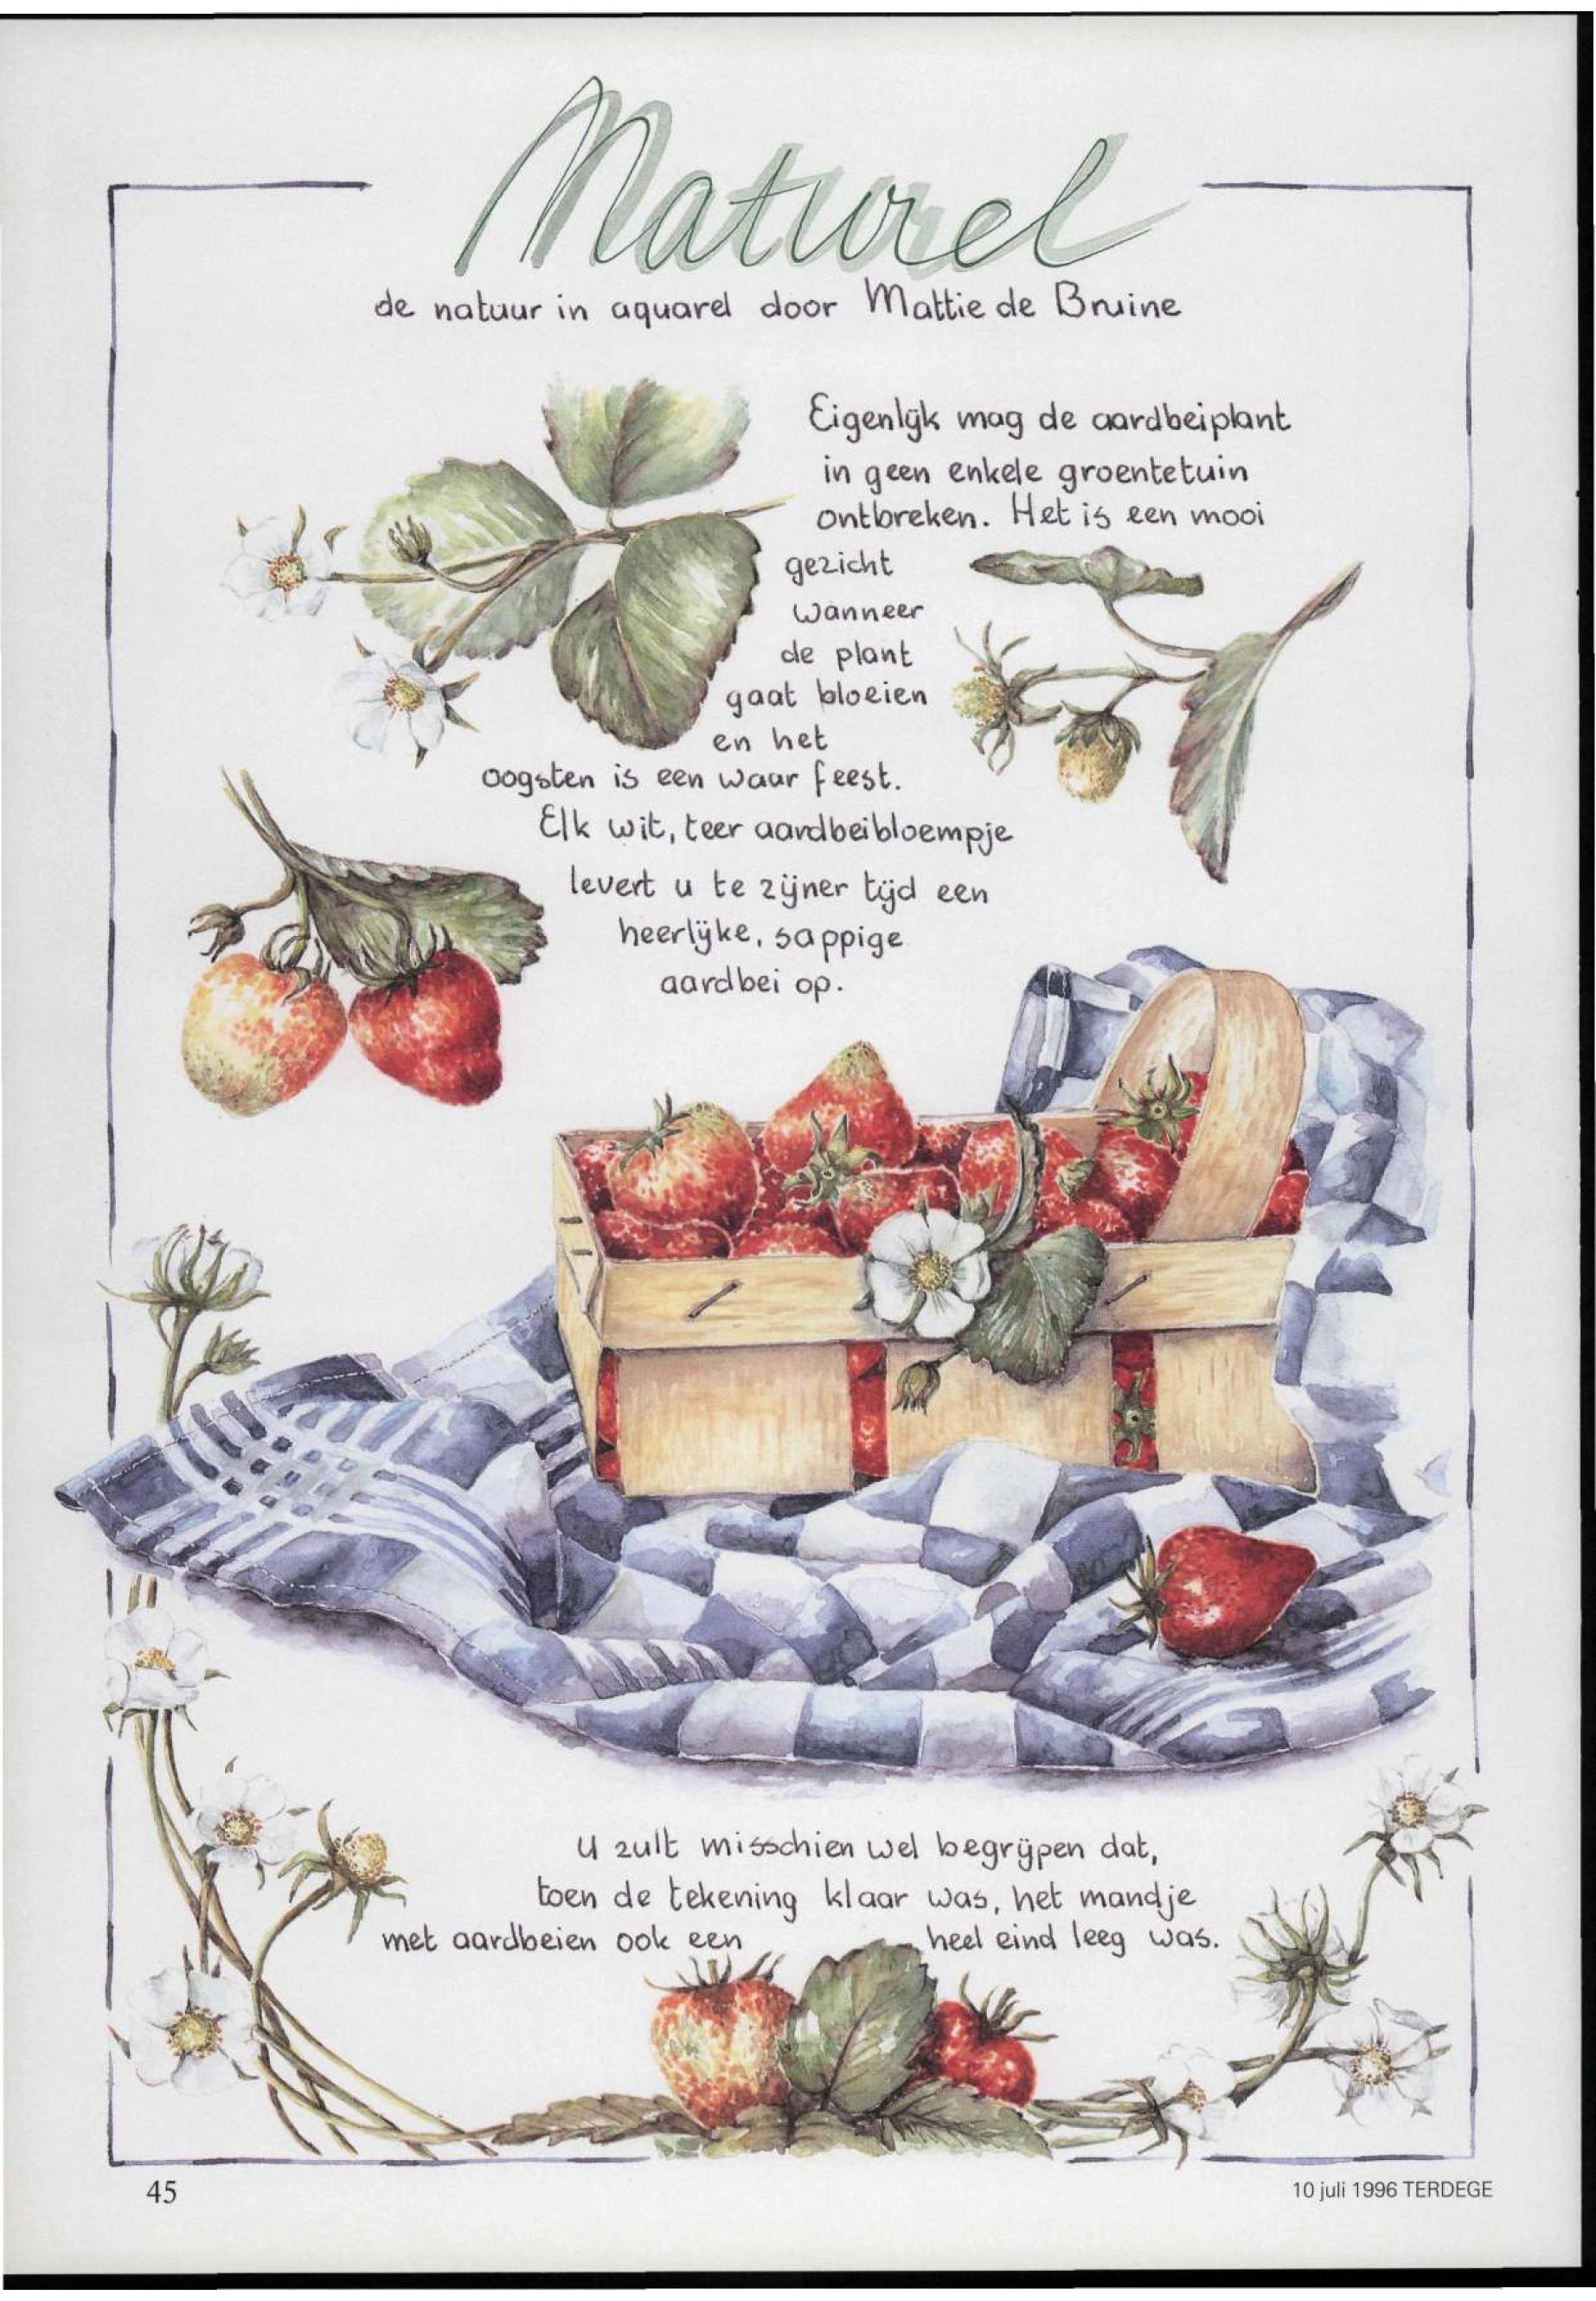 Naturel
de natuur in aquarel door Mattie de Bruine
Eigenlijk mag de aardbeiplant
in geen enkele groentetuin
ontbreken. Het is een mooi
gezicht
wanneer
de plant
gaat bloeien
en het
oogsten is een waar feest.
Elk wit, teer aardbeibloempje
levert u te zijner tijd een
heerlijke, sappige
aardbei op.
U zult misschien wel begrijpen dat,
toen de tekening klaar was, het mandje
met aardbeien ook een heel eind leeg was.
45
10 juli 1996 TERDEGE